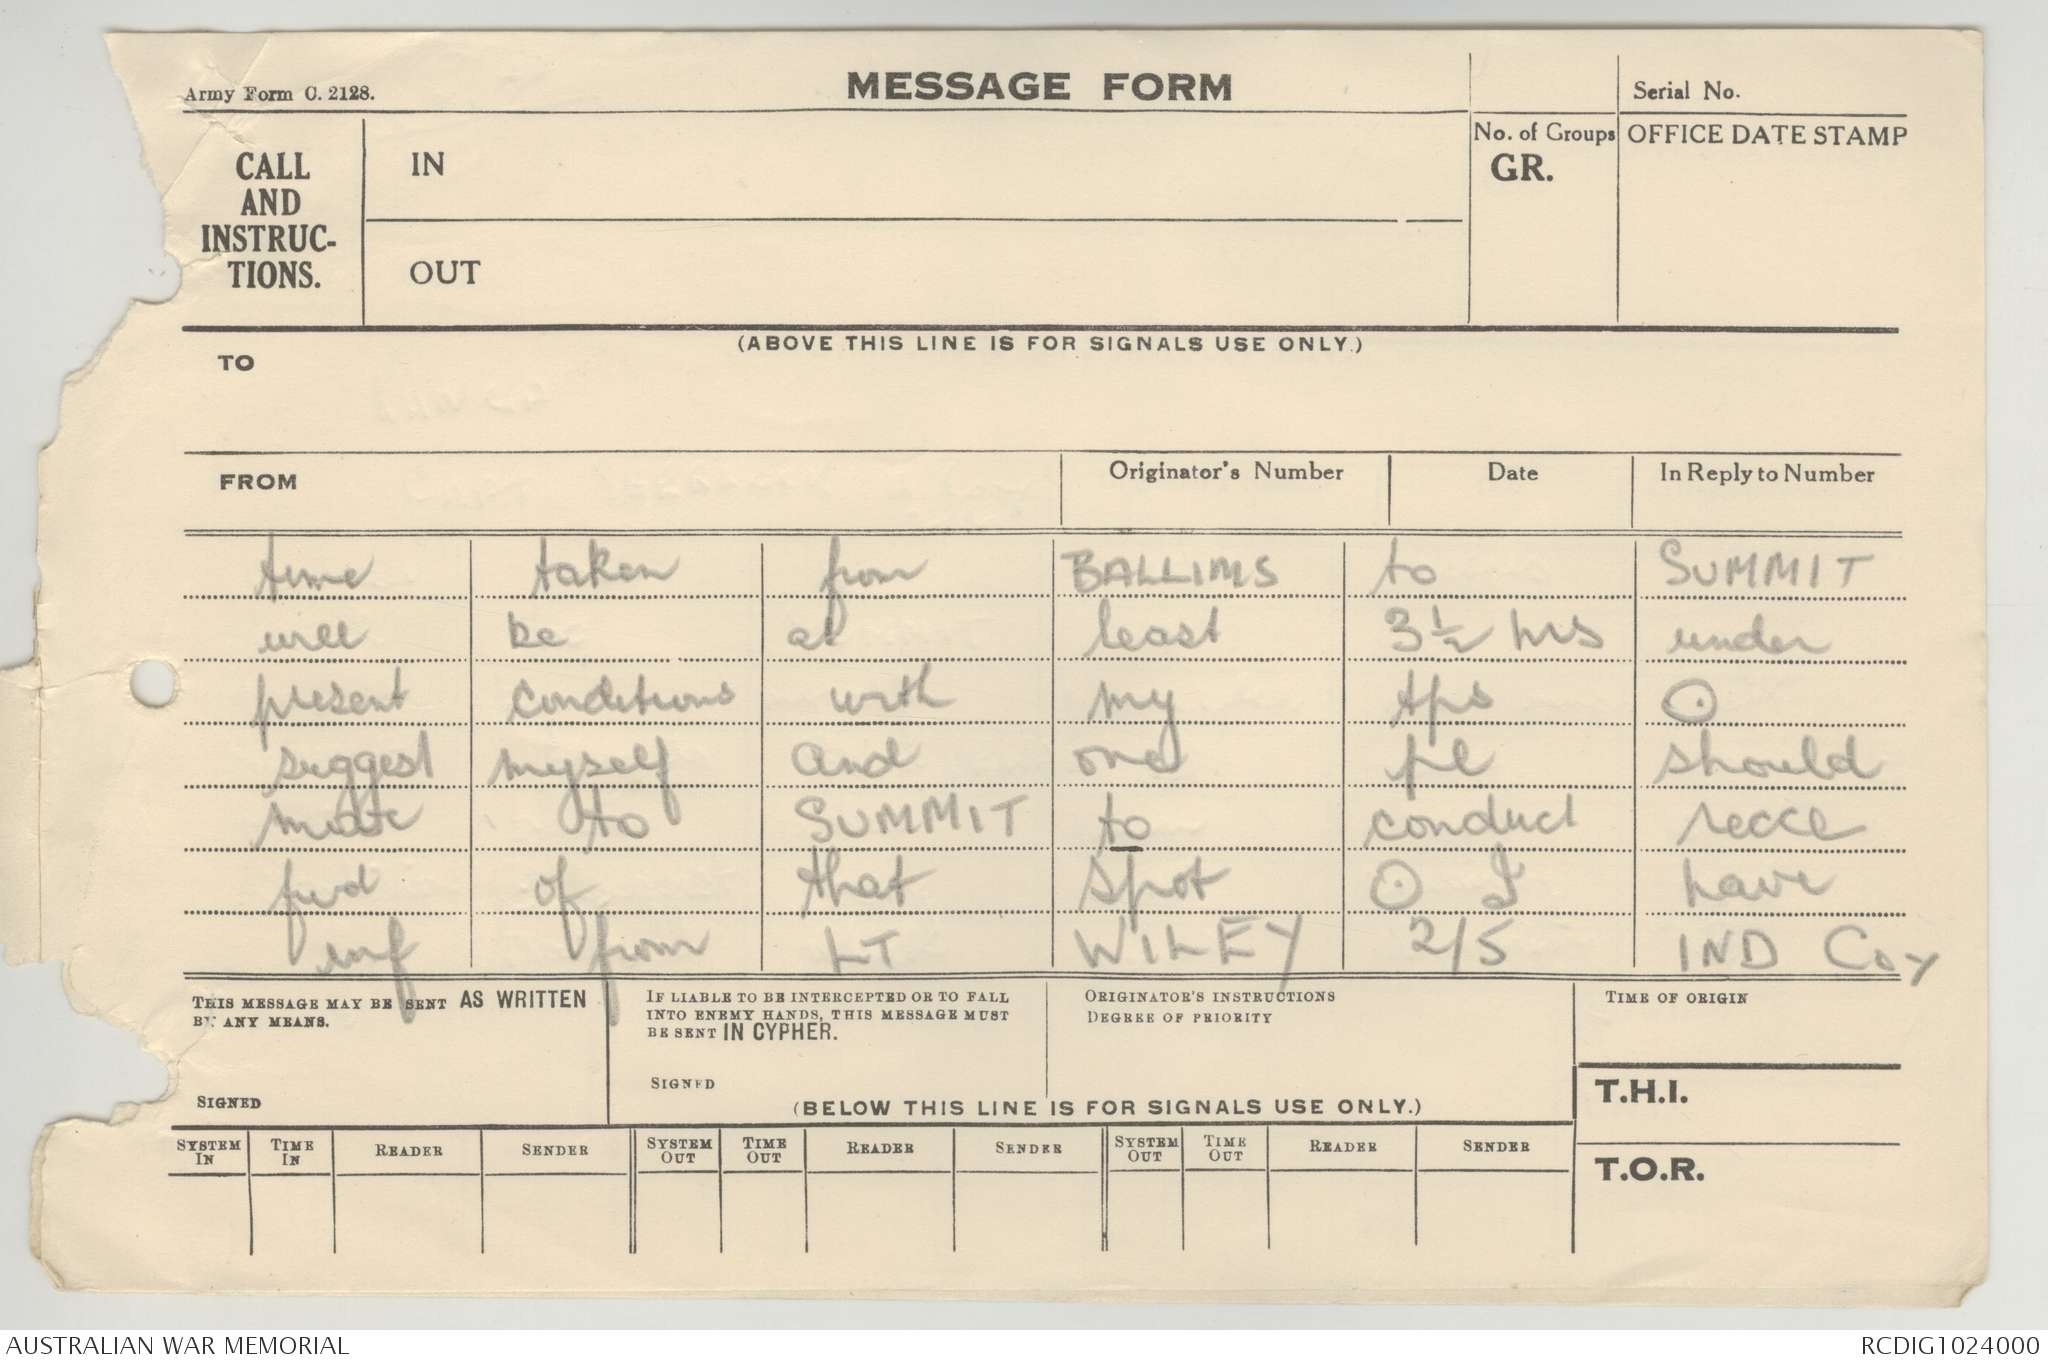 Army Form C. 2128.
MESSAGE FORM
Serial No.
CALL AND INSTRUC-TIONS.
IN
OUT
No. of Groups
GR.
OFFICE DATE STAMP
(ABOVE THIS LINE IS FOR SIGNALS USE ONLY.)
TO
FROM
Originator's Number
Date
In Reply to Number
time taken from BALLIMS to SUMMIT
will be at least 3½ hrs under
present conditions with my tps ⊙
suggest myself and one pl should
move to SUMMIT to conduct recce
fwd of that spot ⊙ I have
inf from LT WILEY 2/5 IND Coy
THIS MESSAGE MAY BE SENT AS WRITTEN
BY ANY MEANS.
SIGNED
IF LIABLE TO BE INTERCEPTED OR TO FALL
INTO ENEMY HANDS, THIS MESSAGE MUST
BE SENT IN CYPHER.
SIGNED
ORIGINATOR'S INSTRUCTIONS
DEGREE OF PRIORITY
TIME OF ORIGIN
(BELOW THIS LINE IS FOR SIGNALS USE ONLY.)
T.H.I.
T.O.R.
SYSTEM IN
TIME IN
READER
SENDER
SYSTEM OUT
TIME OUT
READER
SENDER
SYSTEM OUT
TIME OUT
READER
SENDER
AUSTRALIAN WAR MEMORIAL
RCDIG1024000